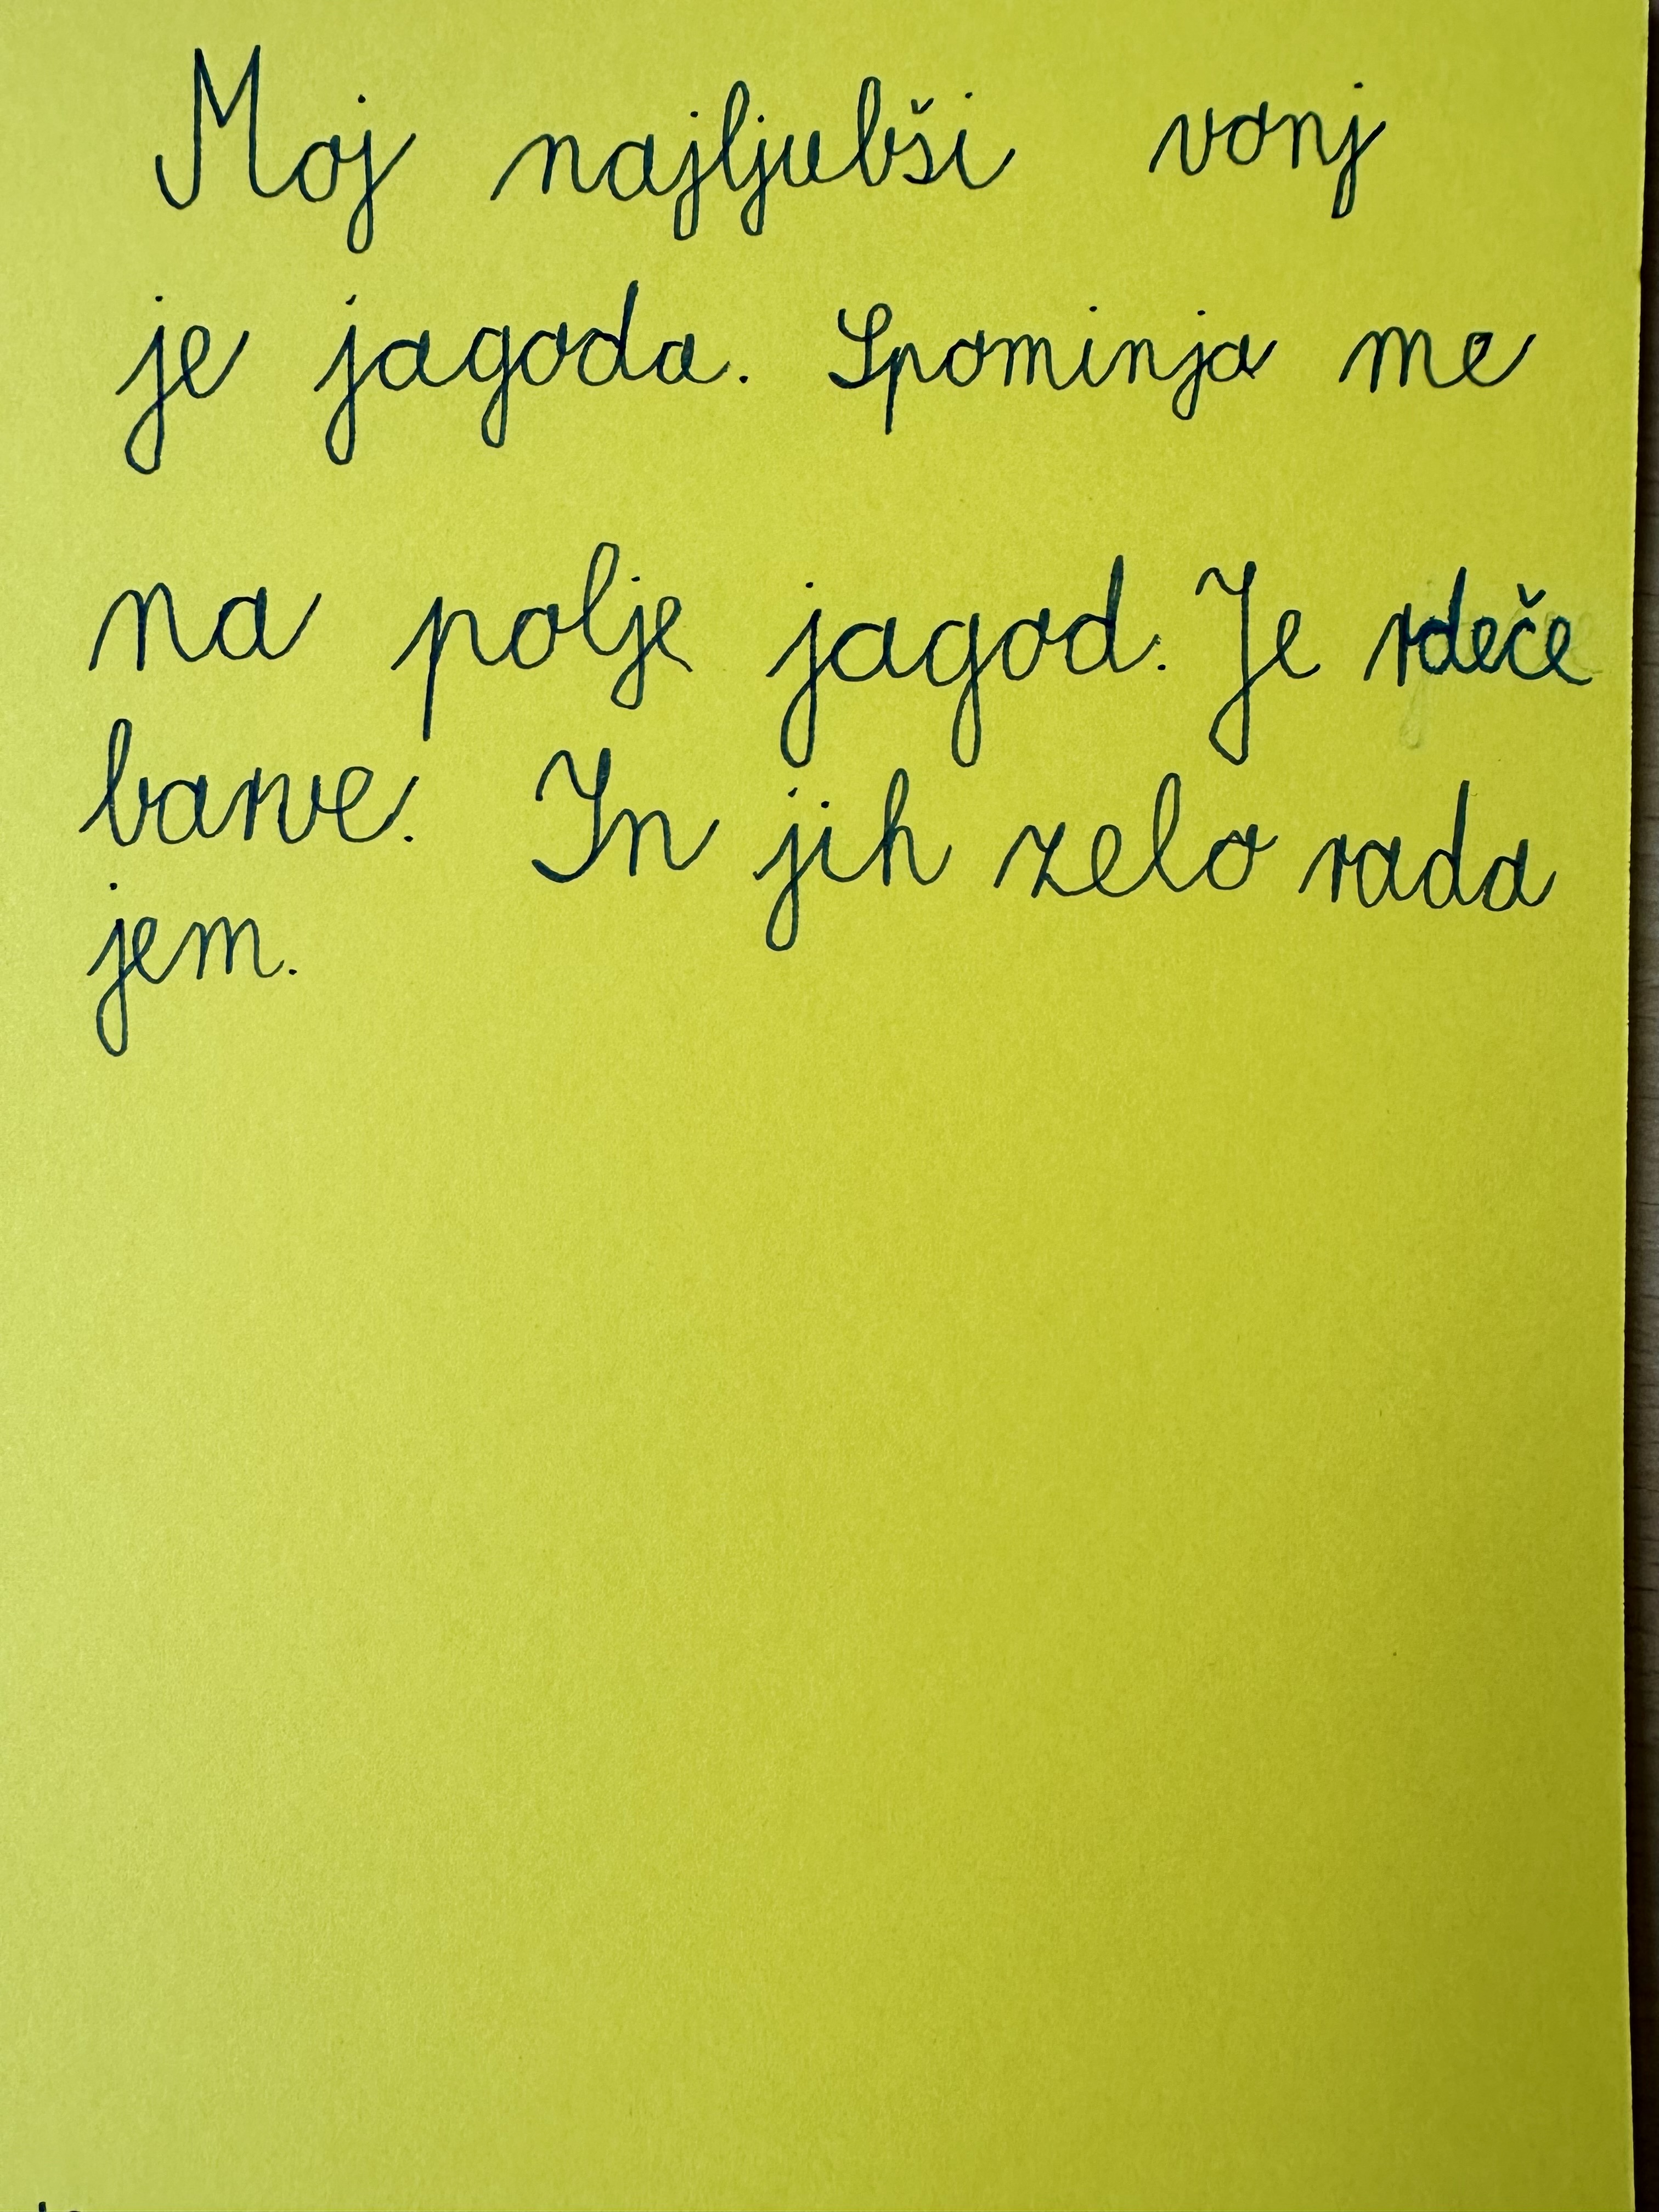 Moj najljubši vonj
je jagoda. Spominja me
na polje jagod. Je rdeče
barve. In jih zelo rada
jem.